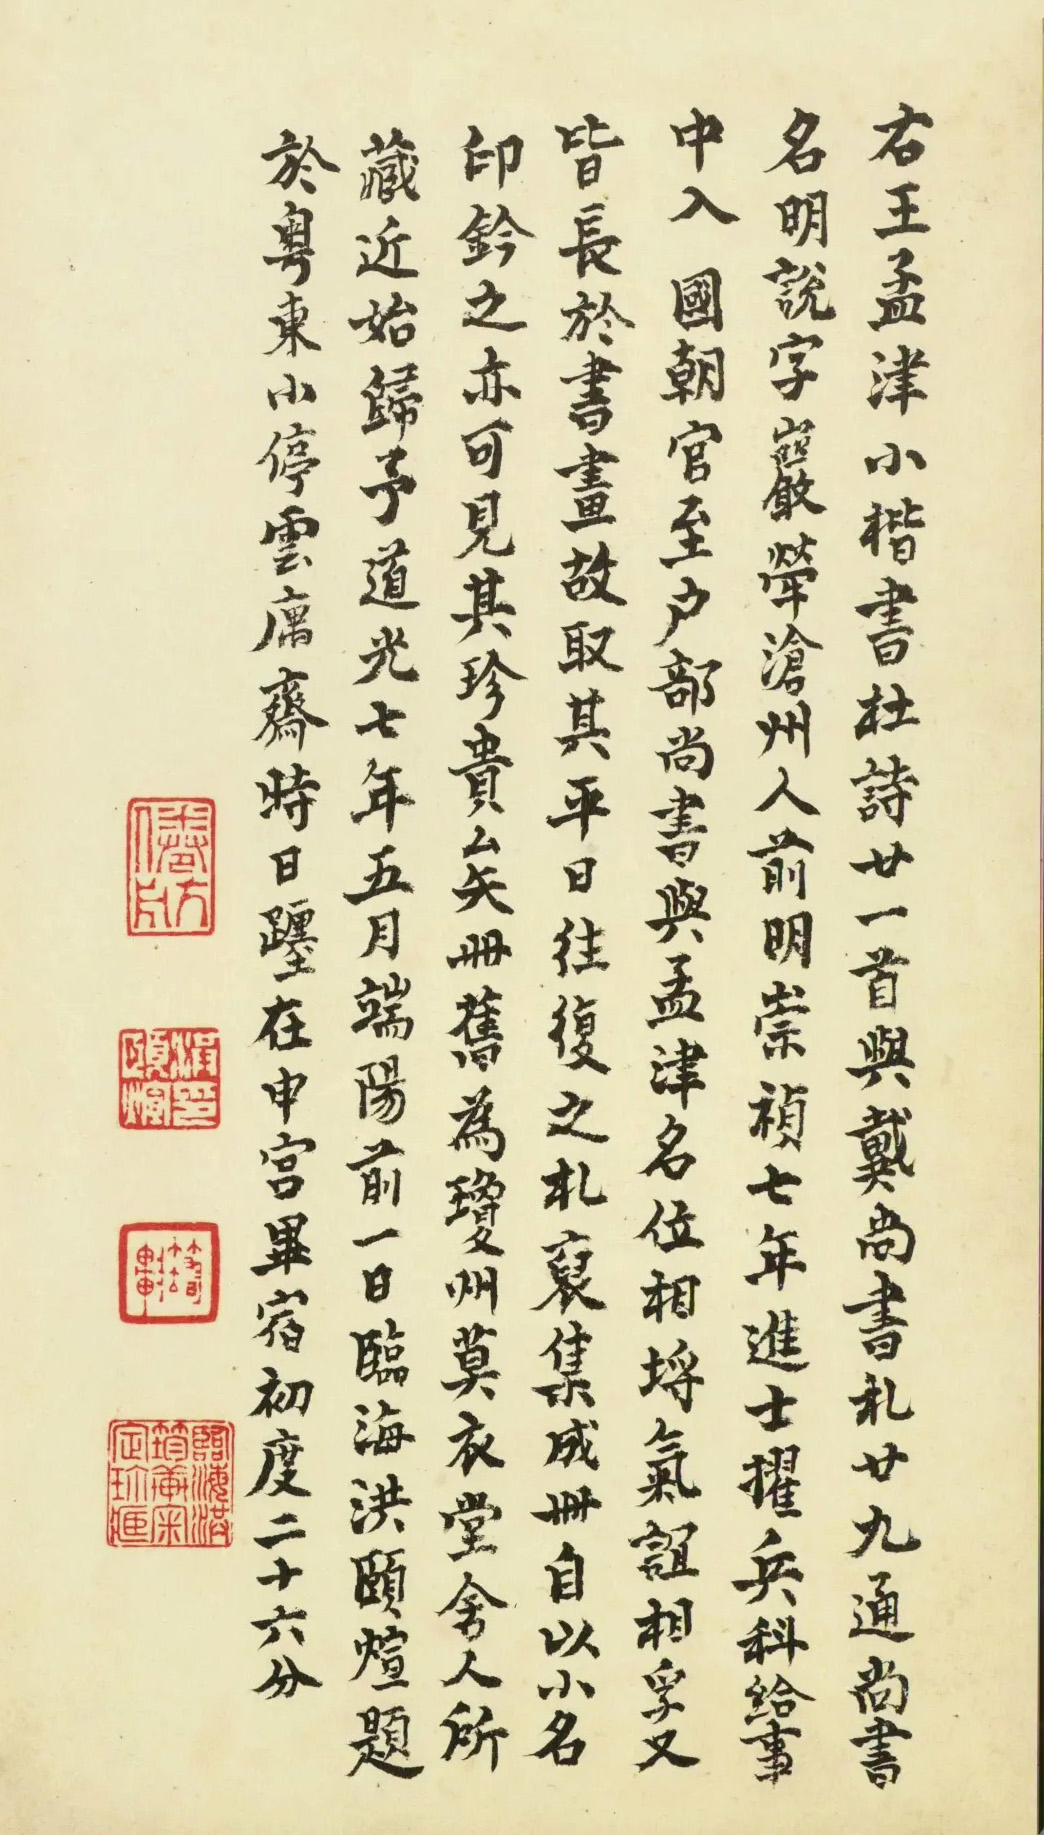 右王孟津小楷書杜詩廿一首與戴尚書札廿九通尚書
名明說字巖犖滄州人前明崇禎七年進士擢兵科給事
中入 國朝官至户部尚書與孟津名位相埒氣誼相孚又
皆長於書畫故取其平日往復之札裒集成冊自以小名
印鈐之亦可見其珍貴矣冊舊為瓊州莫衣堂舍人所
藏近始歸予道光七年五月端陽前一日臨海洪頤煊題
於粤東小停雲庽齋時日躔在申宮畢宿初度二十六分
臨海洪筠軒宋定珍